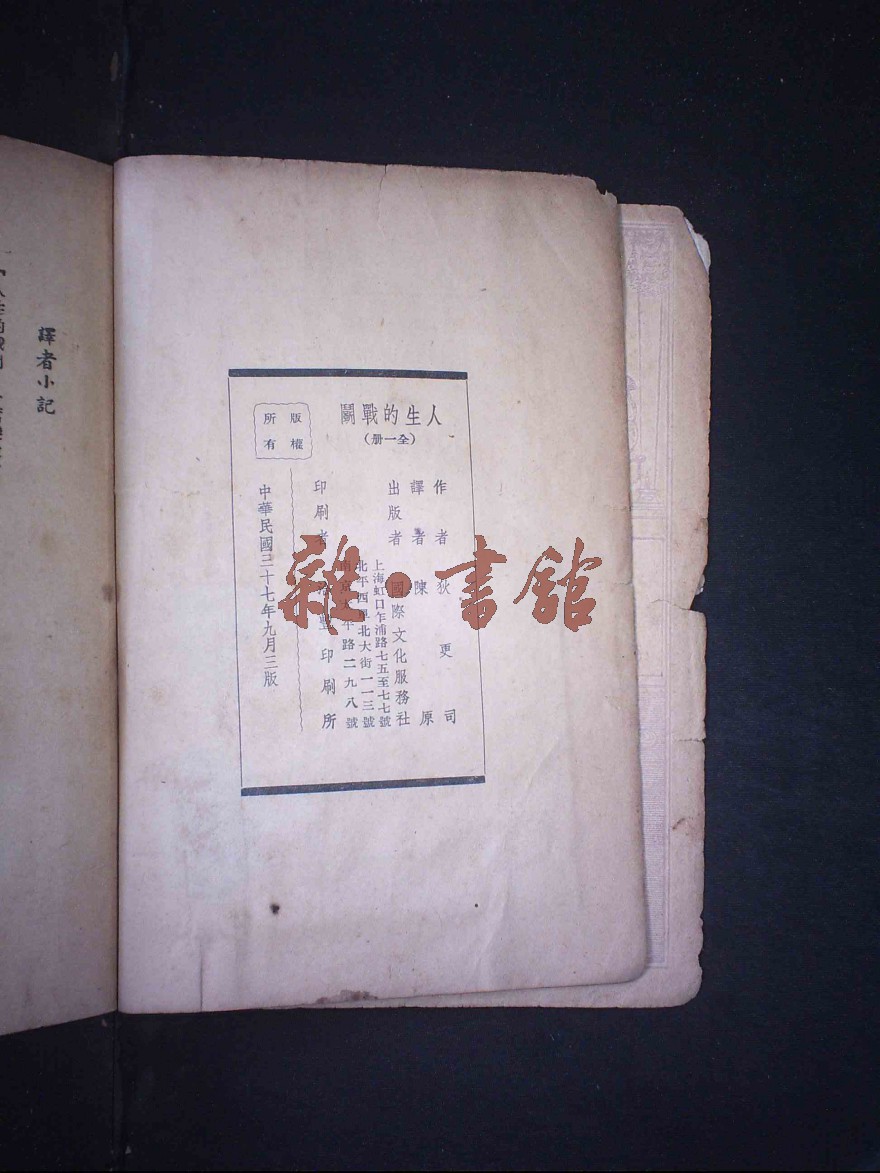 人生的戰鬭
(全一册)
作者 狄更司
譯者 陳原
出版者 國際文化服務社
上海虹口乍浦路七五至七七號
北平西 北大街一一三號
南京 平路二九八號
印刷者 印刷所
中華民國三十七年九月三版
版權所有
譯者小記
雜·書館